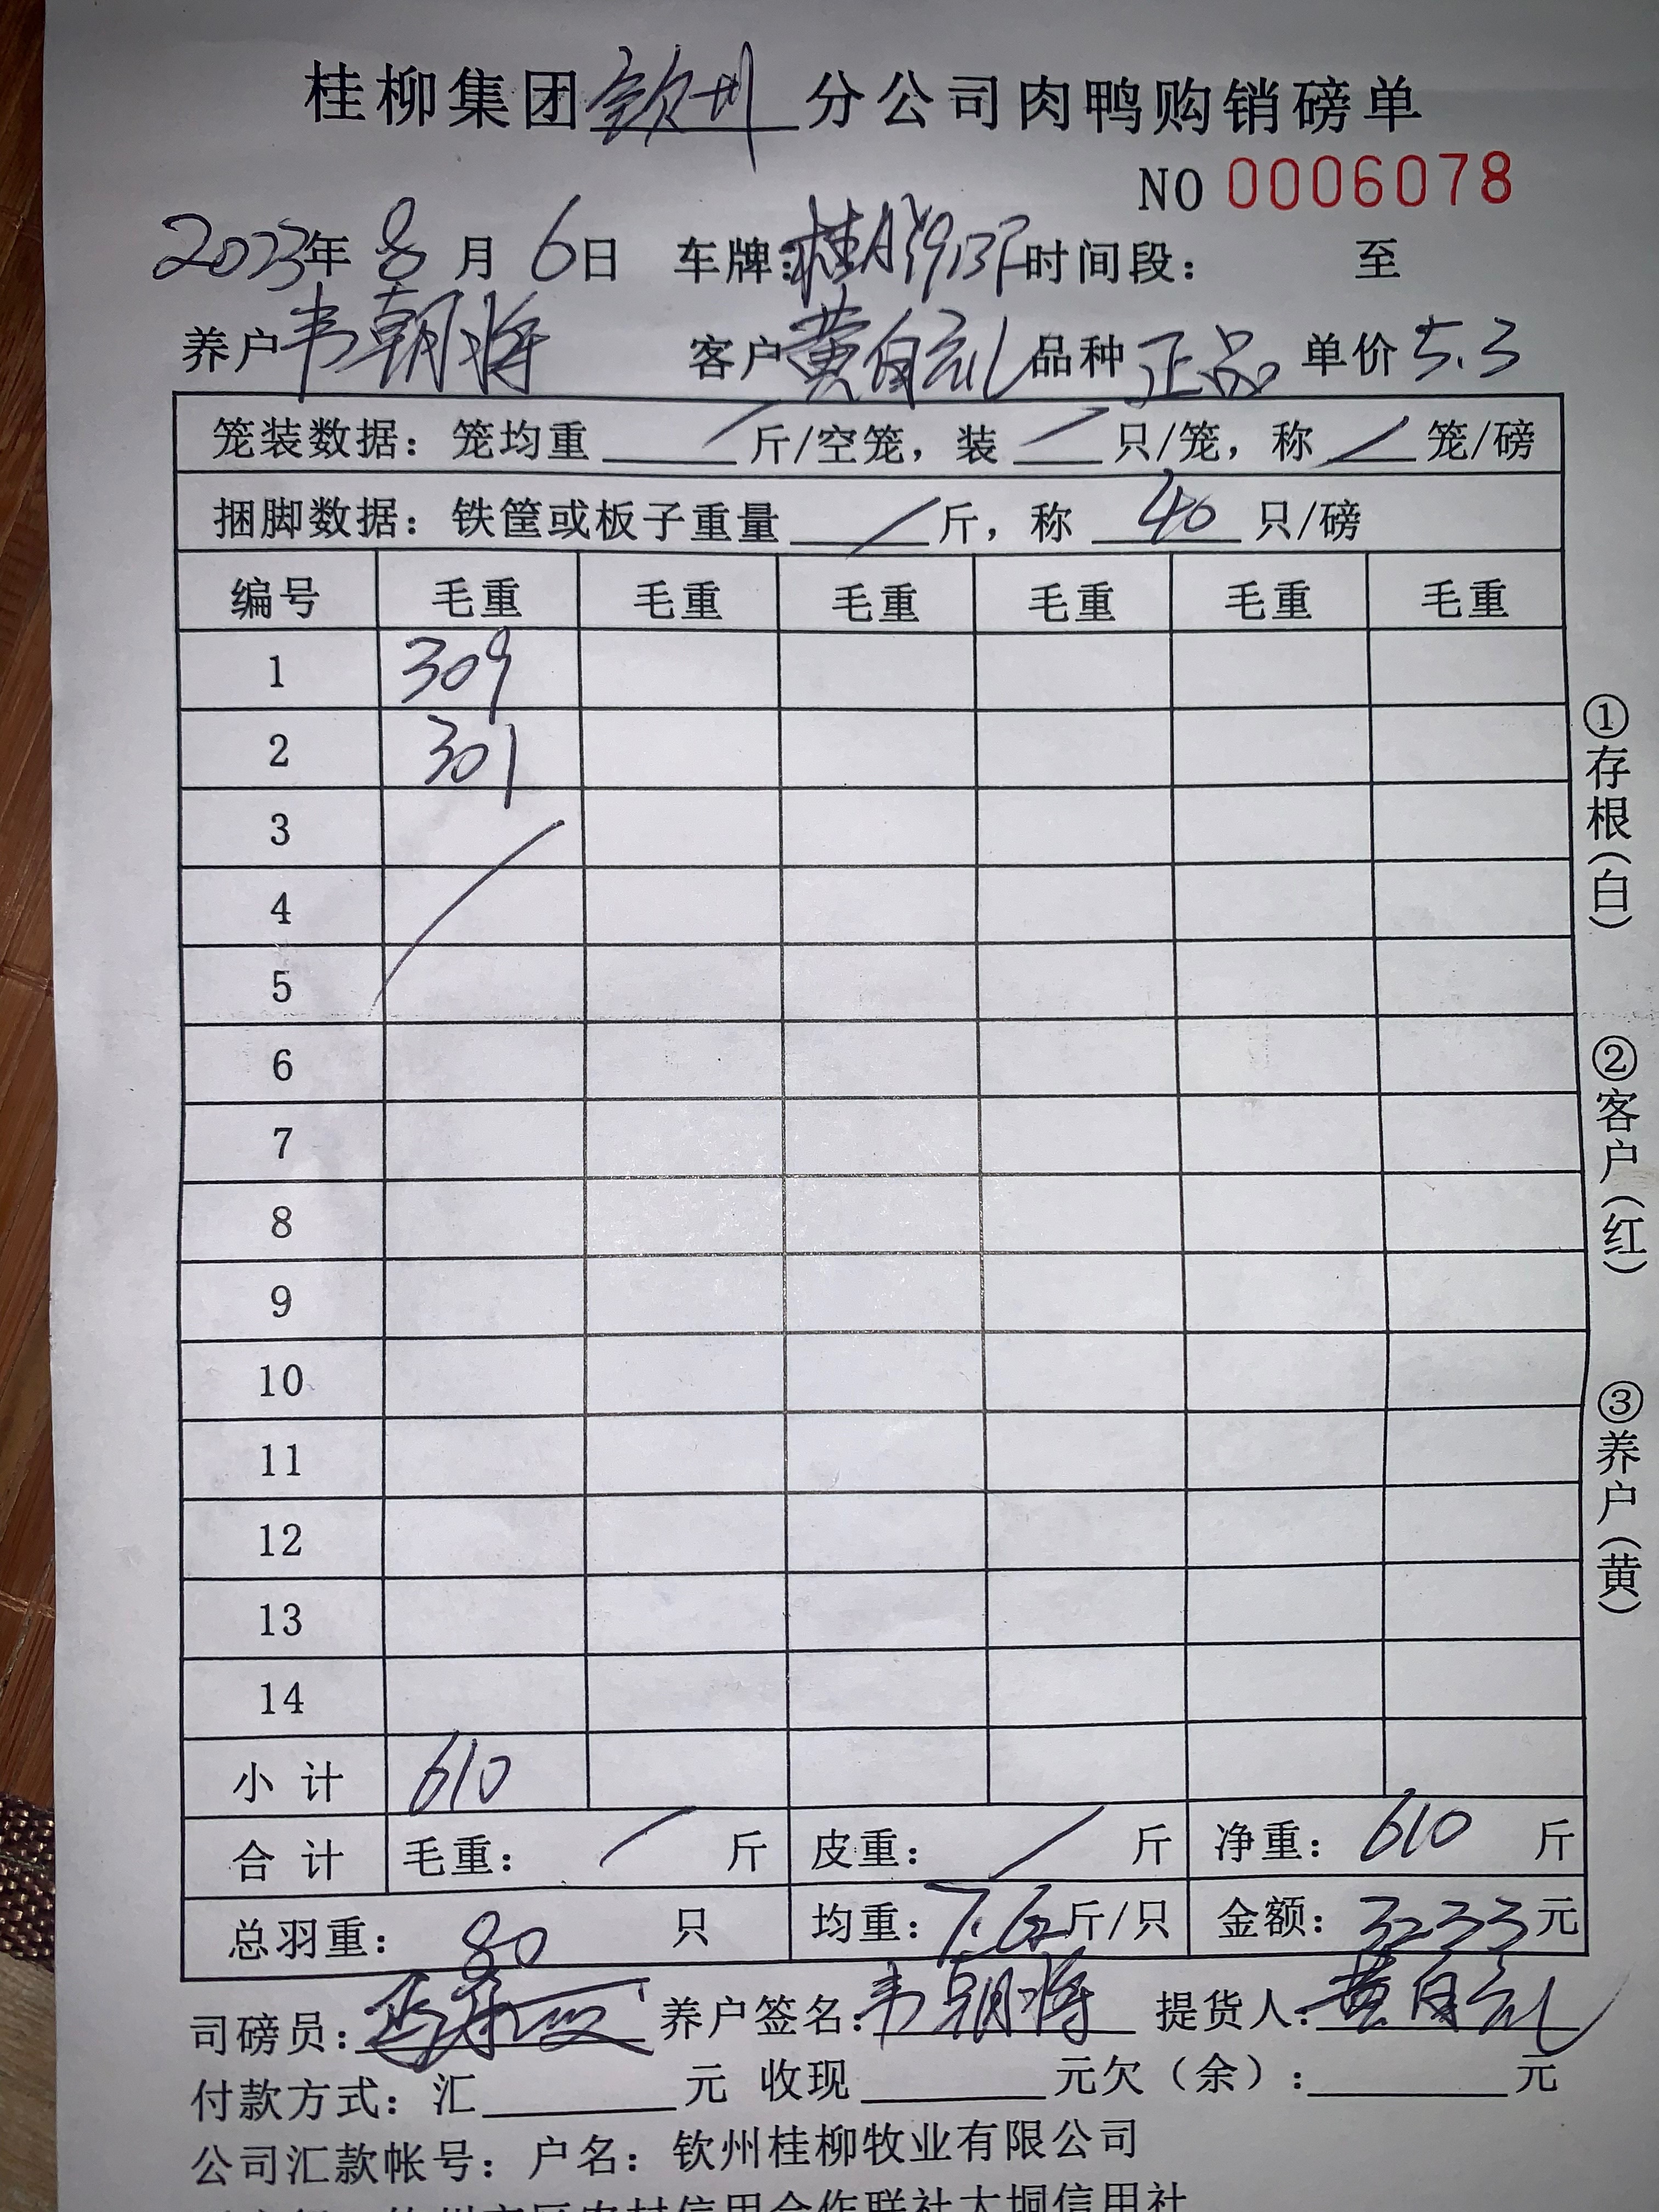 桂柳集团钦州分公司肉鸭购销磅单
NO 0006078
2023年 8月 6日 车牌: 时间段: 至
养户韦朝将 客户黄自礼 品种 正品 单价 5.3
笼装数据: 笼均重 / 斤/空笼, 装 / 只/笼, 称 / 笼/磅
捆脚数据: 铁筐或板子重量 / 斤, 称 40 只/磅
编号 毛重 毛重 毛重 毛重 毛重 毛重
1 309
2 301
3
4
5
6
7
8
9
10
11
12
13
14
小 计 610
合 计 毛重: / 斤 皮重: / 斤 净重: 610 斤
总羽重: 80 只 均重: 7.62斤/只 金额: 3233元
司磅员: 养户签名: 韦朝将 提货人: 黄自礼
付款方式: 汇 元 收现 元欠(余): 元
公司汇款帐号: 户名: 钦州桂柳牧业有限公司
①存根(白)
②客户(红)
③养户(黄)